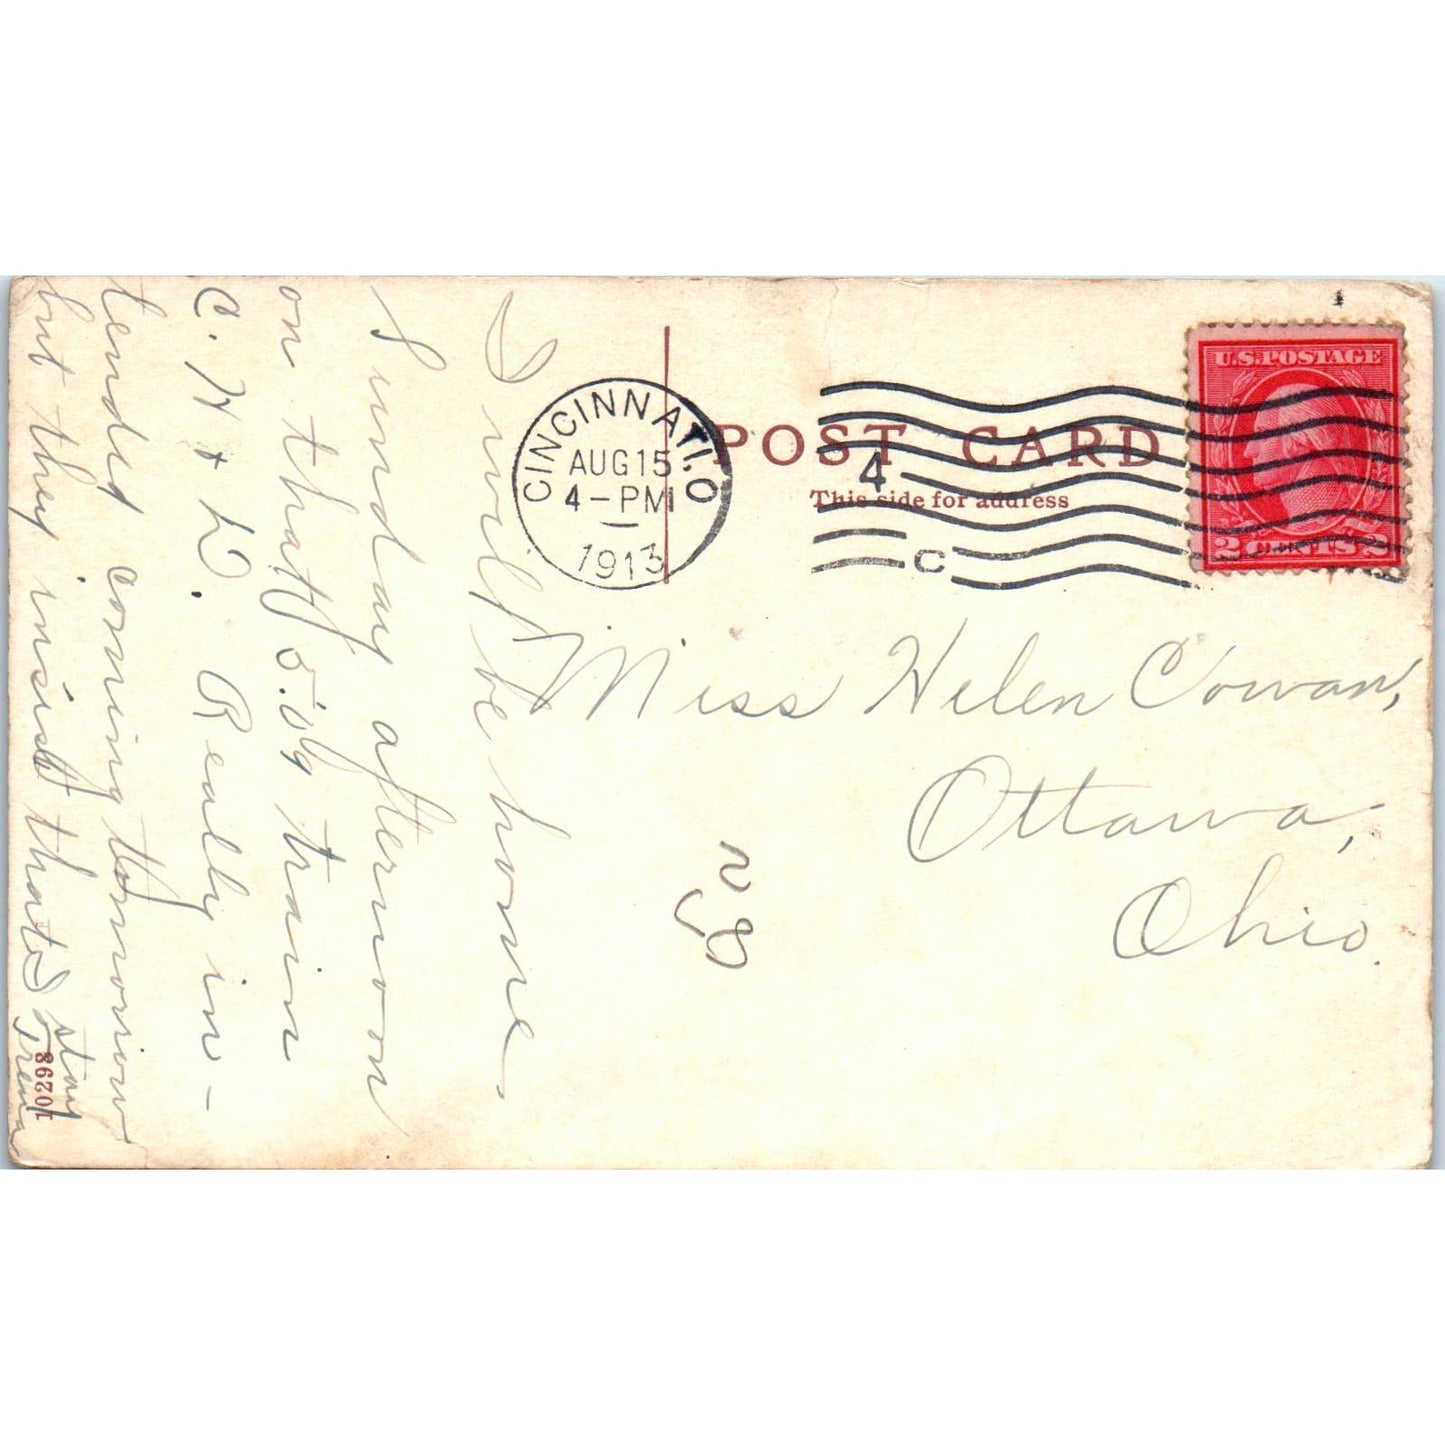 I will be home
Sunday afternoon
on that 5:09 train
C. H & D. Really in-
tended coming tomorrow
but they insist that I stay
Trena
10298
CINCINNATI. O
AUG 15
4-PM
1913
POST CARD
This side for address
4
C
U.S. POSTAGE
2 CENTS 2
Miss Helen Cowan,
Ottawa,
Ohio.